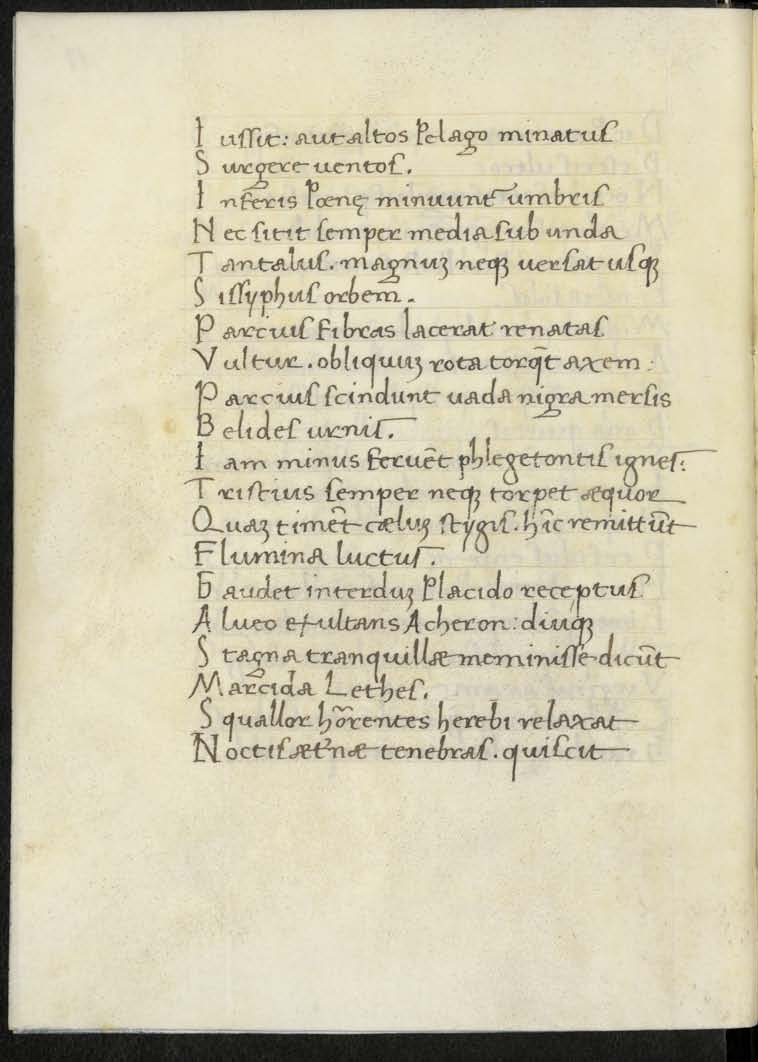 I uſſit: aut altos Pelago minatuſ
S urgere uentoſ.
I nferis Pœnę minuunt̃ umbriſ
N ec ſitit ſemper media ſub unda
T antaluſ. magnuꝫ neqꝫ uerſat uſqꝫ
S iſſyphuſ orbem.
P arciuſ fibras lacerat renataſ
V ultur. obliquuꝫ rota torq̃t axem:
P arciuſ ſcindunt uada nigra merſis
B elideſ urniſ.
I am minus feruēt phlegetontiſ igneſ:
T riſtius ſemper neqꝫ torpet æquor
Q uaꝫ timēt cæluꝫ ſtygiſ. hĩc remittūt
F lumina luctuſ.
G audet interduꝫ Placido receptuſ
A lueo exultans Acheron: diuqꝫ
S tagna tranquillæ meminiſſe dicūt
M arcida Letheſ.
S quallor hõrentes herebi relaxat
N octiſ æt̃næ tenebraſ. quiſcit